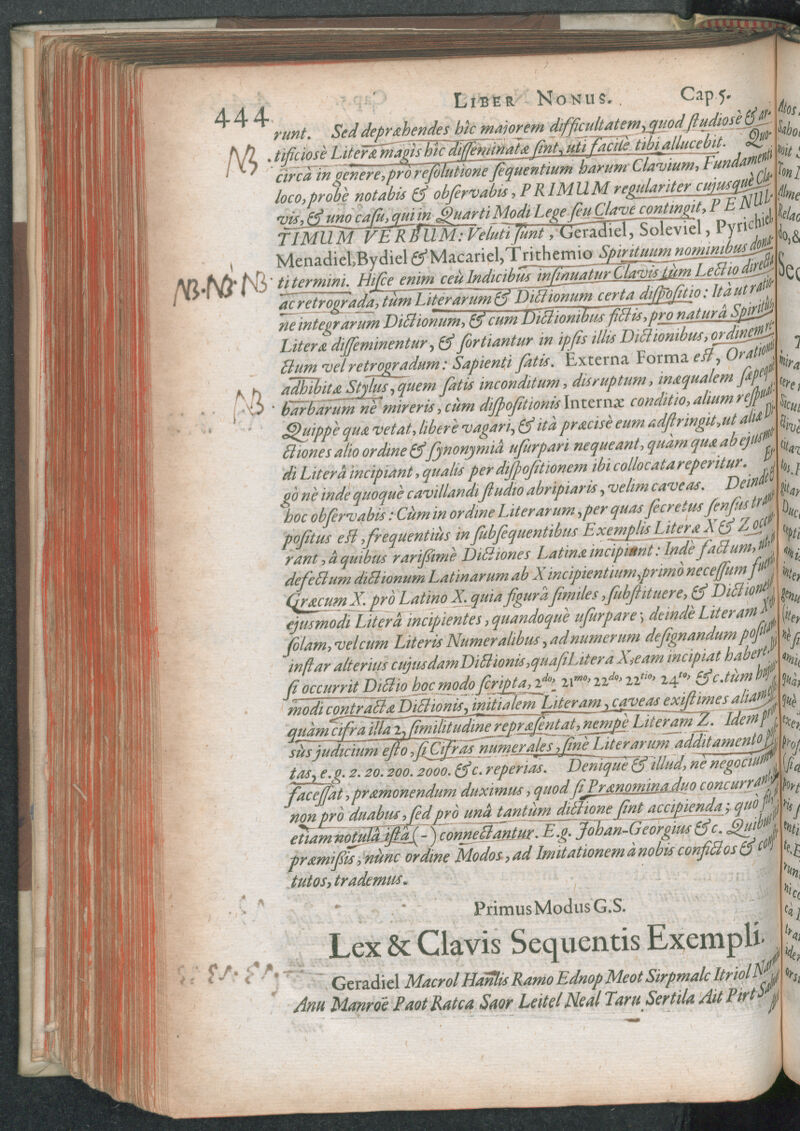 444 LIBER NONUS. Cap 5.
runt. Sed depræhendes hîc majorem difficultatem, quod studiosè & ar-
NB . tificiosè Literæ magis hîc disseminatæ sint, uti facilè tibi allucebit. Quo-
circà in genere, prò resolutione sequentium harum Clavium, Fundamenti
loco, probè notabis & observabis, PRIMUM regulariter cujusquè Cla-
vis, & uno casu, qui in Quarti Modi Lege seu Clave contingit, PENUL-
TIMUM VERBUM: Veluti sunt, Geradiel, Soleviel, Pyrichiel,
Menadiel, Bydiel & Macariel, Trithemio Spirituum nominibus dona-
NB·NB·NB ti termini. Hisce enim ceù Indicibus insinuatur Clavis tùm Lectio directa
ac retrograda, tùm Literarum & Dictionum certa dispositio: Ità ut ratio-
ne integrarum Dictionum, & cum Dictionibus fictis, pro naturâ Spiritûs
Literæ disseminentur, & sortiantur in ipsis illis Dictionibus, ordinem re-
ctum vel retrogradum: Sapienti satis. Externa Forma est, Orationi
adhibitæ Stylus, quem satis inconditum, disruptum, inæqualem sæpeque
NB · barbarum nè mireris, cùm dispositionis Internæ conditio, alium respuat.
Quippè quæ vetat, liberè vagari, & ità præcisè eum adstringit, ut aliæ Di-
ctiones alio ordine & synonymiâ usurpari nequeant, quàm quæ ab ejusmo-
di Literâ incipiant, qualis per dispositionem ibi collocata reperitur. Er-
gò nè inde quoquè cavillandi studio abripiaris, velim caveas. Deindè &
hoc observabis: Cùm in ordine Literarum, per quas secretus sensus trans-
positus est, frequentiùs in subsequentibus Exemplis Literæ X & Z occur-
rant, à quibus rarissimè Dictiones Latinæ incipiunt: Indè factum, ut in
defectum dictionum Latinarum ab X incipientium, primò necessum fuerit
Græcum X. prò Latino X. quia figurâ similes, substituere, & Dictiones
ejusmodi Literâ incipientes, quandoquè usurpare; deindè Literam X
solam, vel cum Literis Numeralibus, ad numerum designandum positam
instar alterius cujusdam Dictionis, quasi Litera X, eam incipiat habere.
si occurrit Dictio hoc modo scripta, 2do, 21mo, 22do, 22tio, 24to, &c. tùm hujus-
modi contractæ Dictionis, initialem Literam, caveas existimes aliam esse
quàm cifra illa 2, similitudine repræsentat, nempè Literam Z. Idem pror-
sùs judicium esto, si Cifras numerales, sinè Literarum additamento po-
tas, e. g. 2. 20. 200. 2000. &c. reperias. Deniquè & illud, nè negocium
facessat, præmonendum duximus, quod si Prænomina duo concurrant
non prò duabus, sed prò unâ tantùm dictione sint accipienda; quò
etiam notulâ istâ (-) connectantur. E. g. Johan-Georgius &c. Quibus
præmissis, nùnc ordine Modos, ad Imitationem à nobis confictos &
tutos, trademus.
Primus Modus G.S.
Lex & Clavis Sequentis Exempli.
Geradiel Macrol Hanlis Ramo Ednop Meot Sirpmalc Itriol
Anu Manroë Paot Ratca Saor Leitel Neal Taru Sertila Ait Pirt